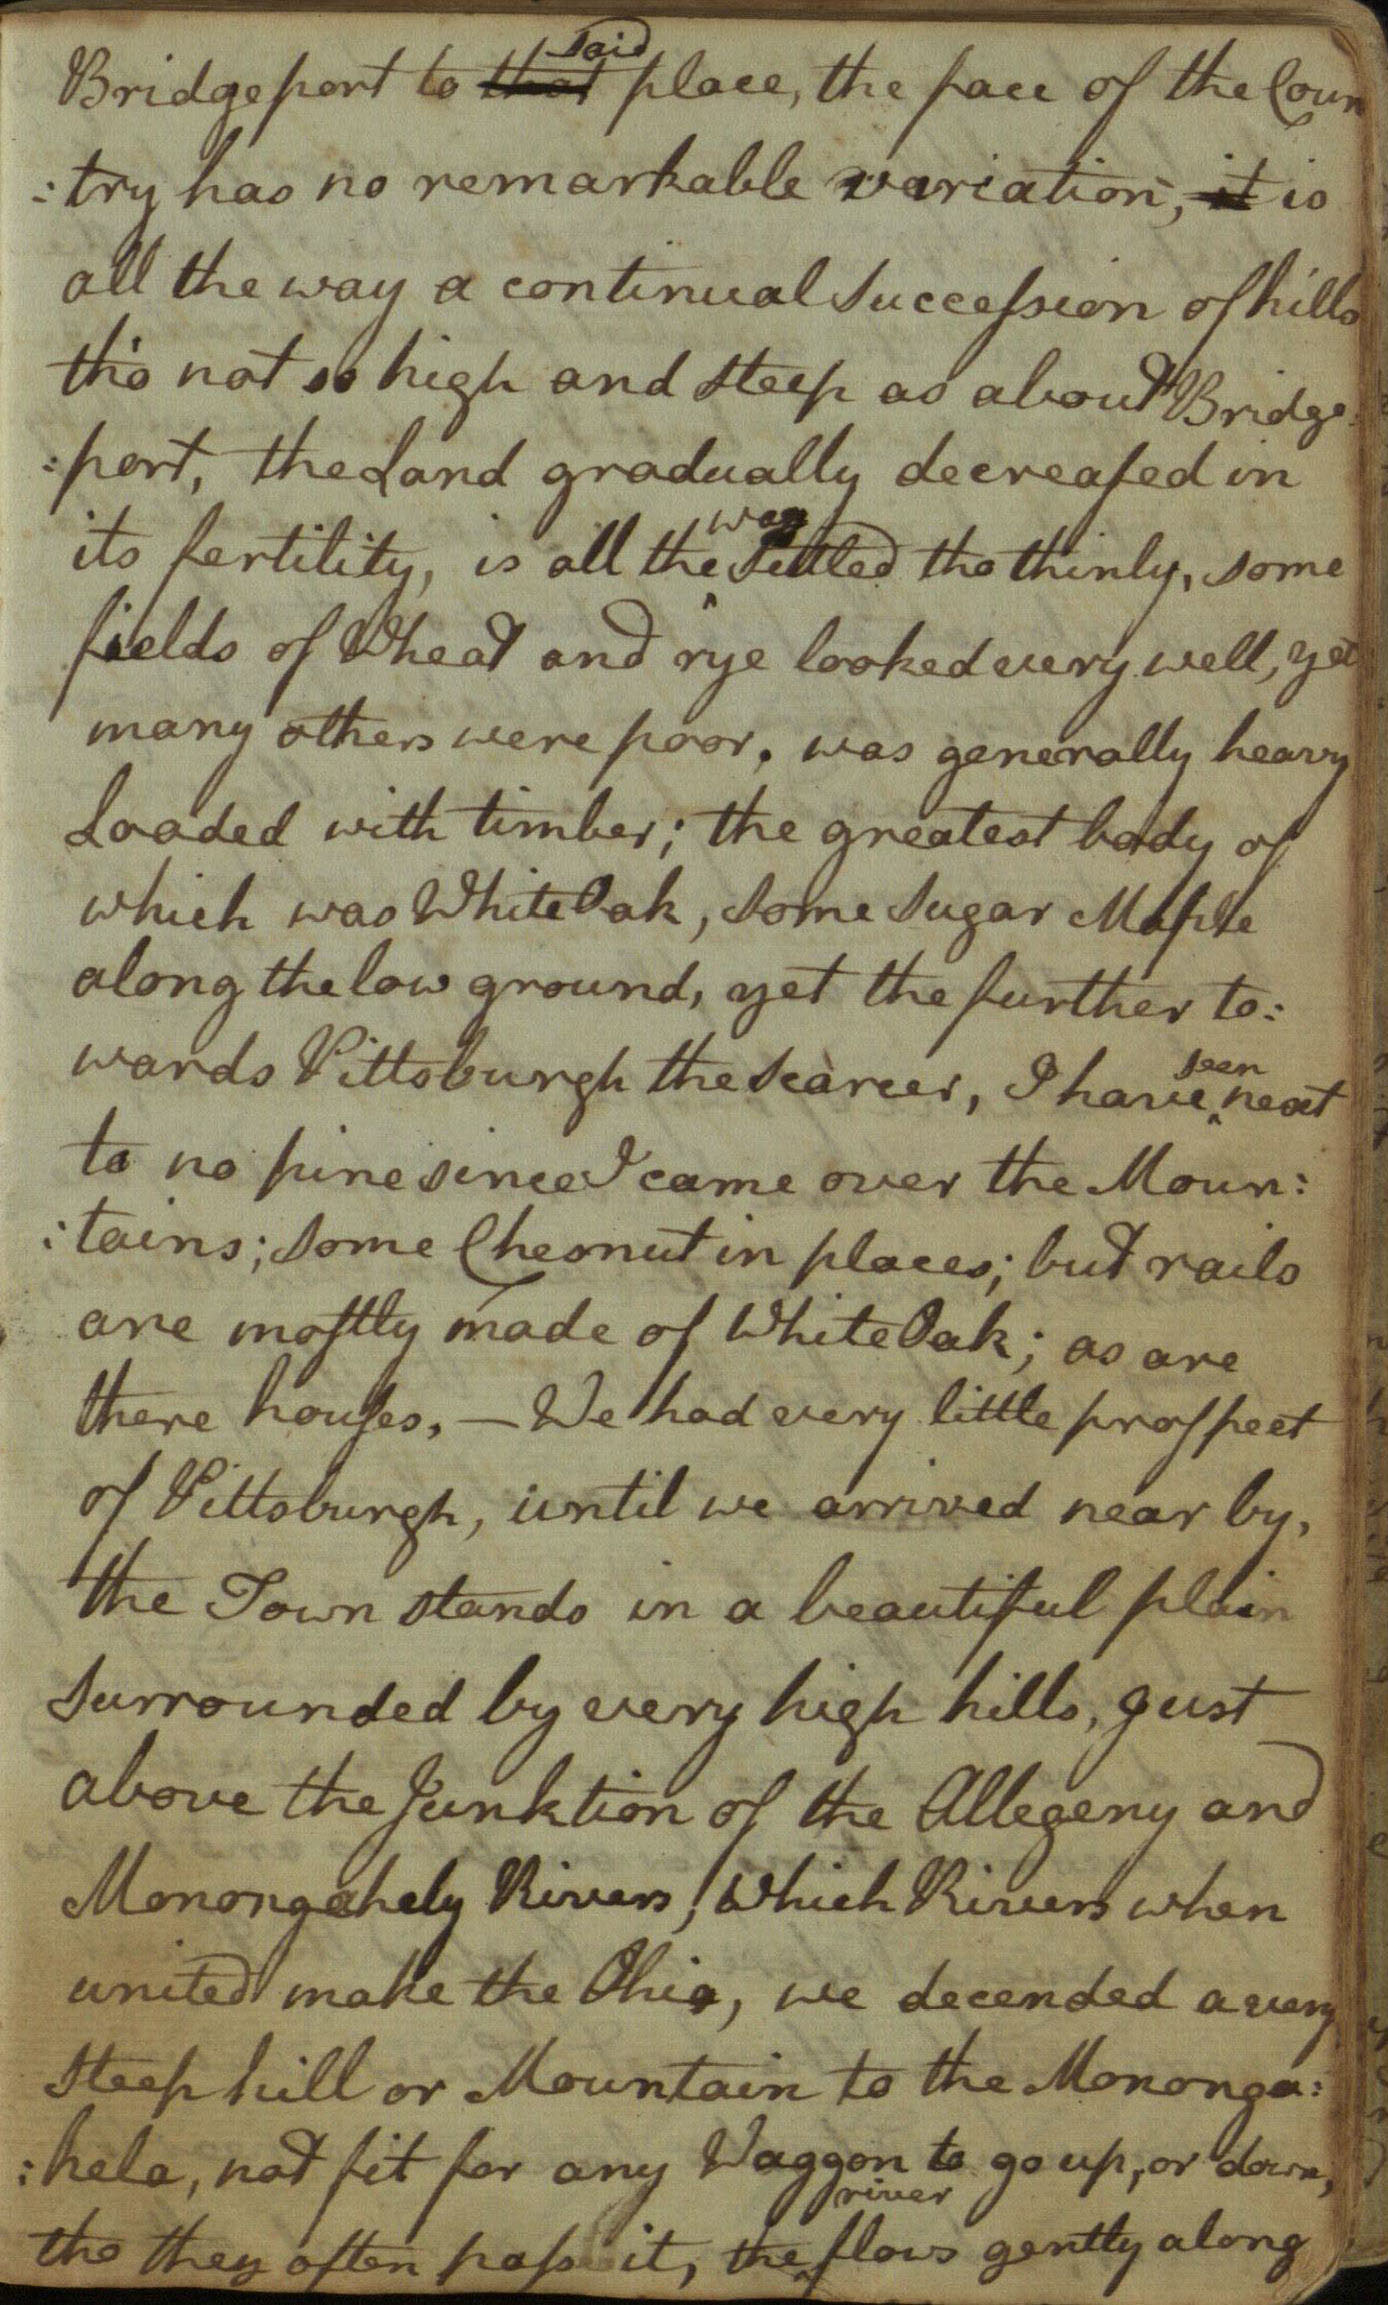 Bridgeport to that said place, the face of the Coun
:try has no remarkable variation, it is
all the way a continual Succession of hills
tho not so high and steep as about Bridge:
:port, the Land gradually decreased in
its fertility, is all the way Settled tho thinly, some
fields of Wheat and rye looked very well, yet
many others were poor. was generally heavy
Loaded with timber; the greatest body of
which was White Oak, some Sugar Maple
along the low ground, yet the further to:
wards Pittsburgh the Scarcer, I have seen next
to no pine since I came over the Moun:
:tains; some Chesnut in places; but rails
are mostly made of White Oak; as are
there houses, — We had very little prospect
of Pittsburgh, until we arrived near by,
the Town stands in a beautiful plain
Surrounded by very high hills, gust
above the Junktion of the Allegeny and
Monongahely Rivers, Which Rivers when
united make the Ohio, we decended a very
Steep hill or Mountain to the Mononga:
:hela, not fit for any Waggon to go up, or down,
tho they often pass it, the river flows gently along